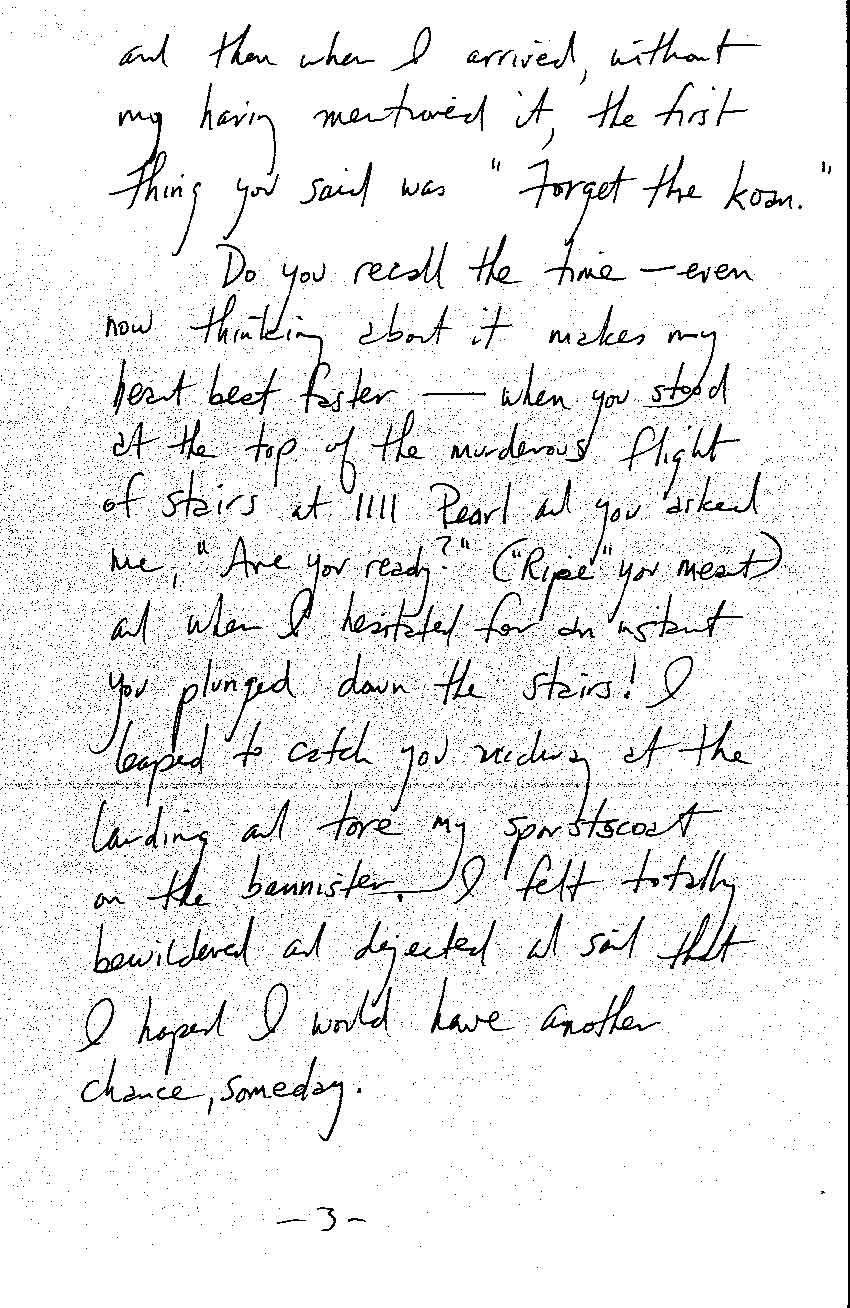 and then when I arrived, without
my having mentioned it, the first
thing you said was "Forget the koan."
Do you recall the time — even
now thinking about it makes my
heart beat faster — when you stood
at the top of the murderous flight
of stairs at 1111 Pearl and you asked
me, "Are you ready?" ("Ripe" you meant)
and when I hesitated for an instant
you plunged down the stairs! I
leaped to catch you midway at the
landing and tore my sportscoat
on the bannister. I felt totally
bewildered and dejected and said that
I hoped I would have another
chance, someday.
- 3 -